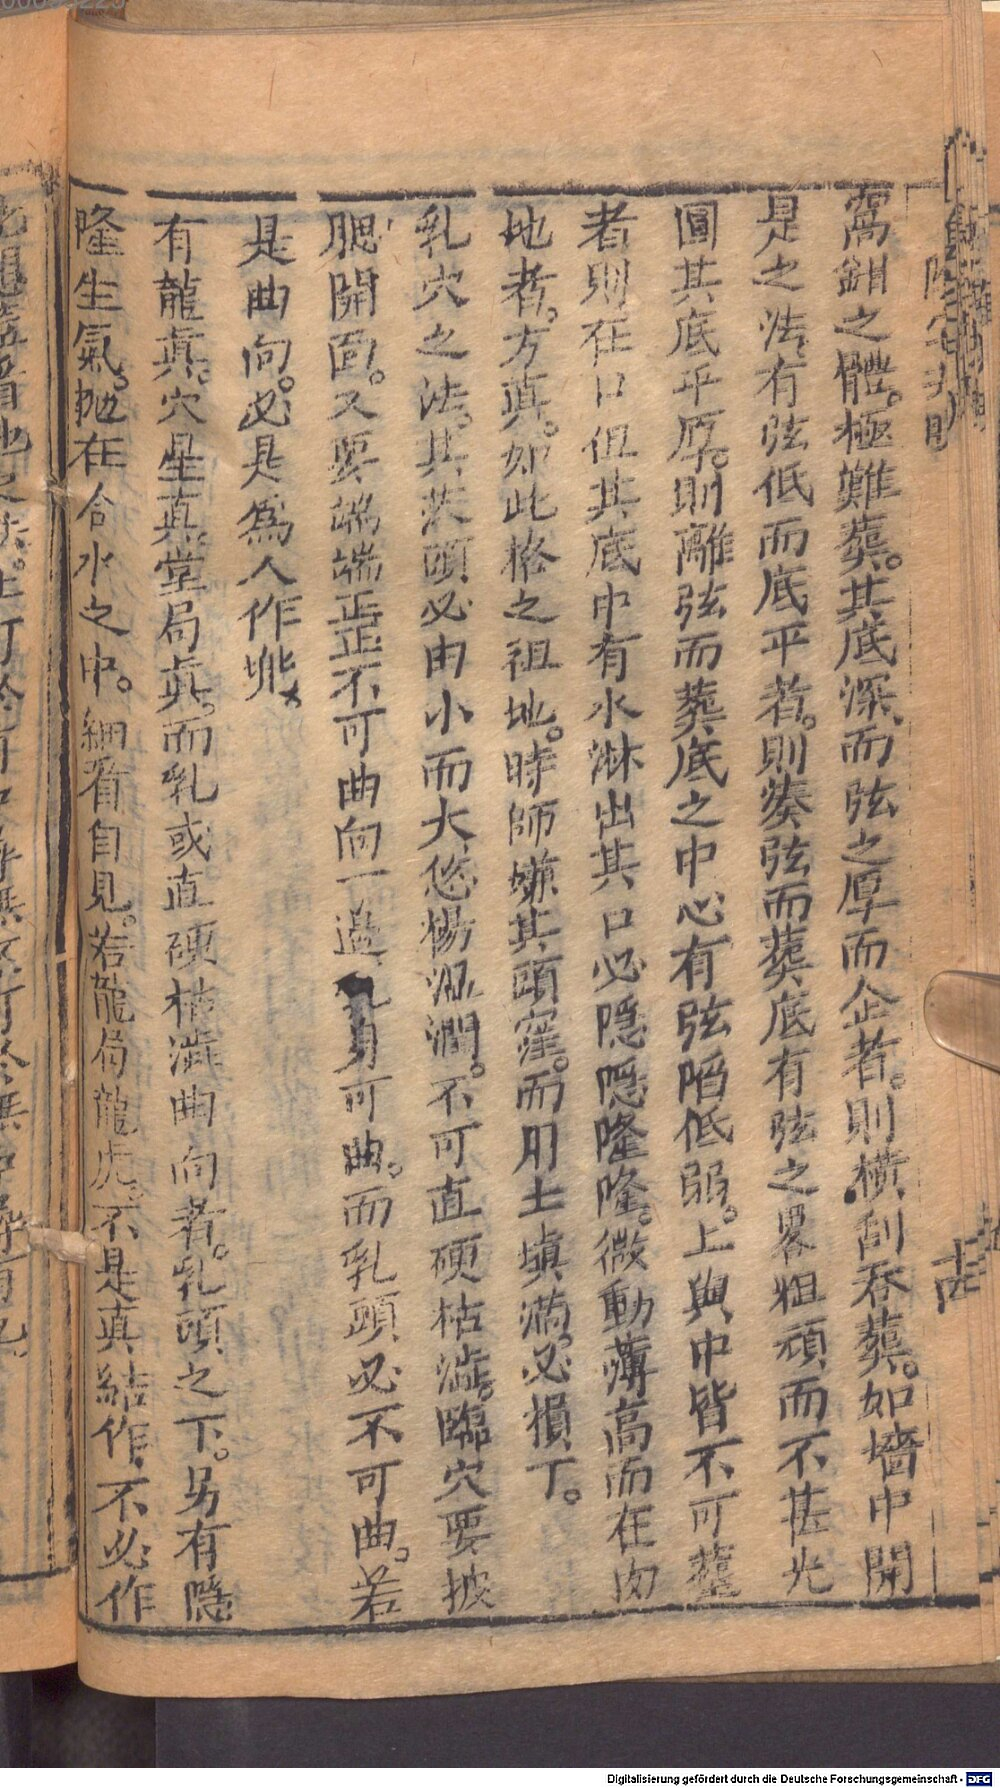 窩鉗之體。極難葬。其底深、而弦之厚而企者。則橫刮吞葬。如墻中開
是之法、有弦低而底平者。則湊弦而葬底有弦之畧粗頑而不甚光
圓其底平厚。則離弦而葬底之中心有弦陷低弱。上與中皆不可葬
者則在口但其底中有水淋出其口必隱隱隆隆。微動薄高而在內
地者。方眞。如此格之祖地。時師嫌其頭窪。而用土塡滿。必損丁。
乳穴之法。其茨頭必由小而大、悠揚活潤。不可直硬枯澁。臨穴要披
腮開面。又要端端正正不可曲向一邊、乳身可曲。而乳頭必不可曲。若
是曲向。必是爲人作
有龍眞。穴星眞。堂局眞。而乳或直硬枯澁曲向者。乳頭之下。另有隱
隆生氣。拋在合水之中。細看自見。若龍局龍虎。不是眞結作、不必作
十四
Digitalisierung gefördert durch die Deutsche Forschungsgemeinschaft - DFG